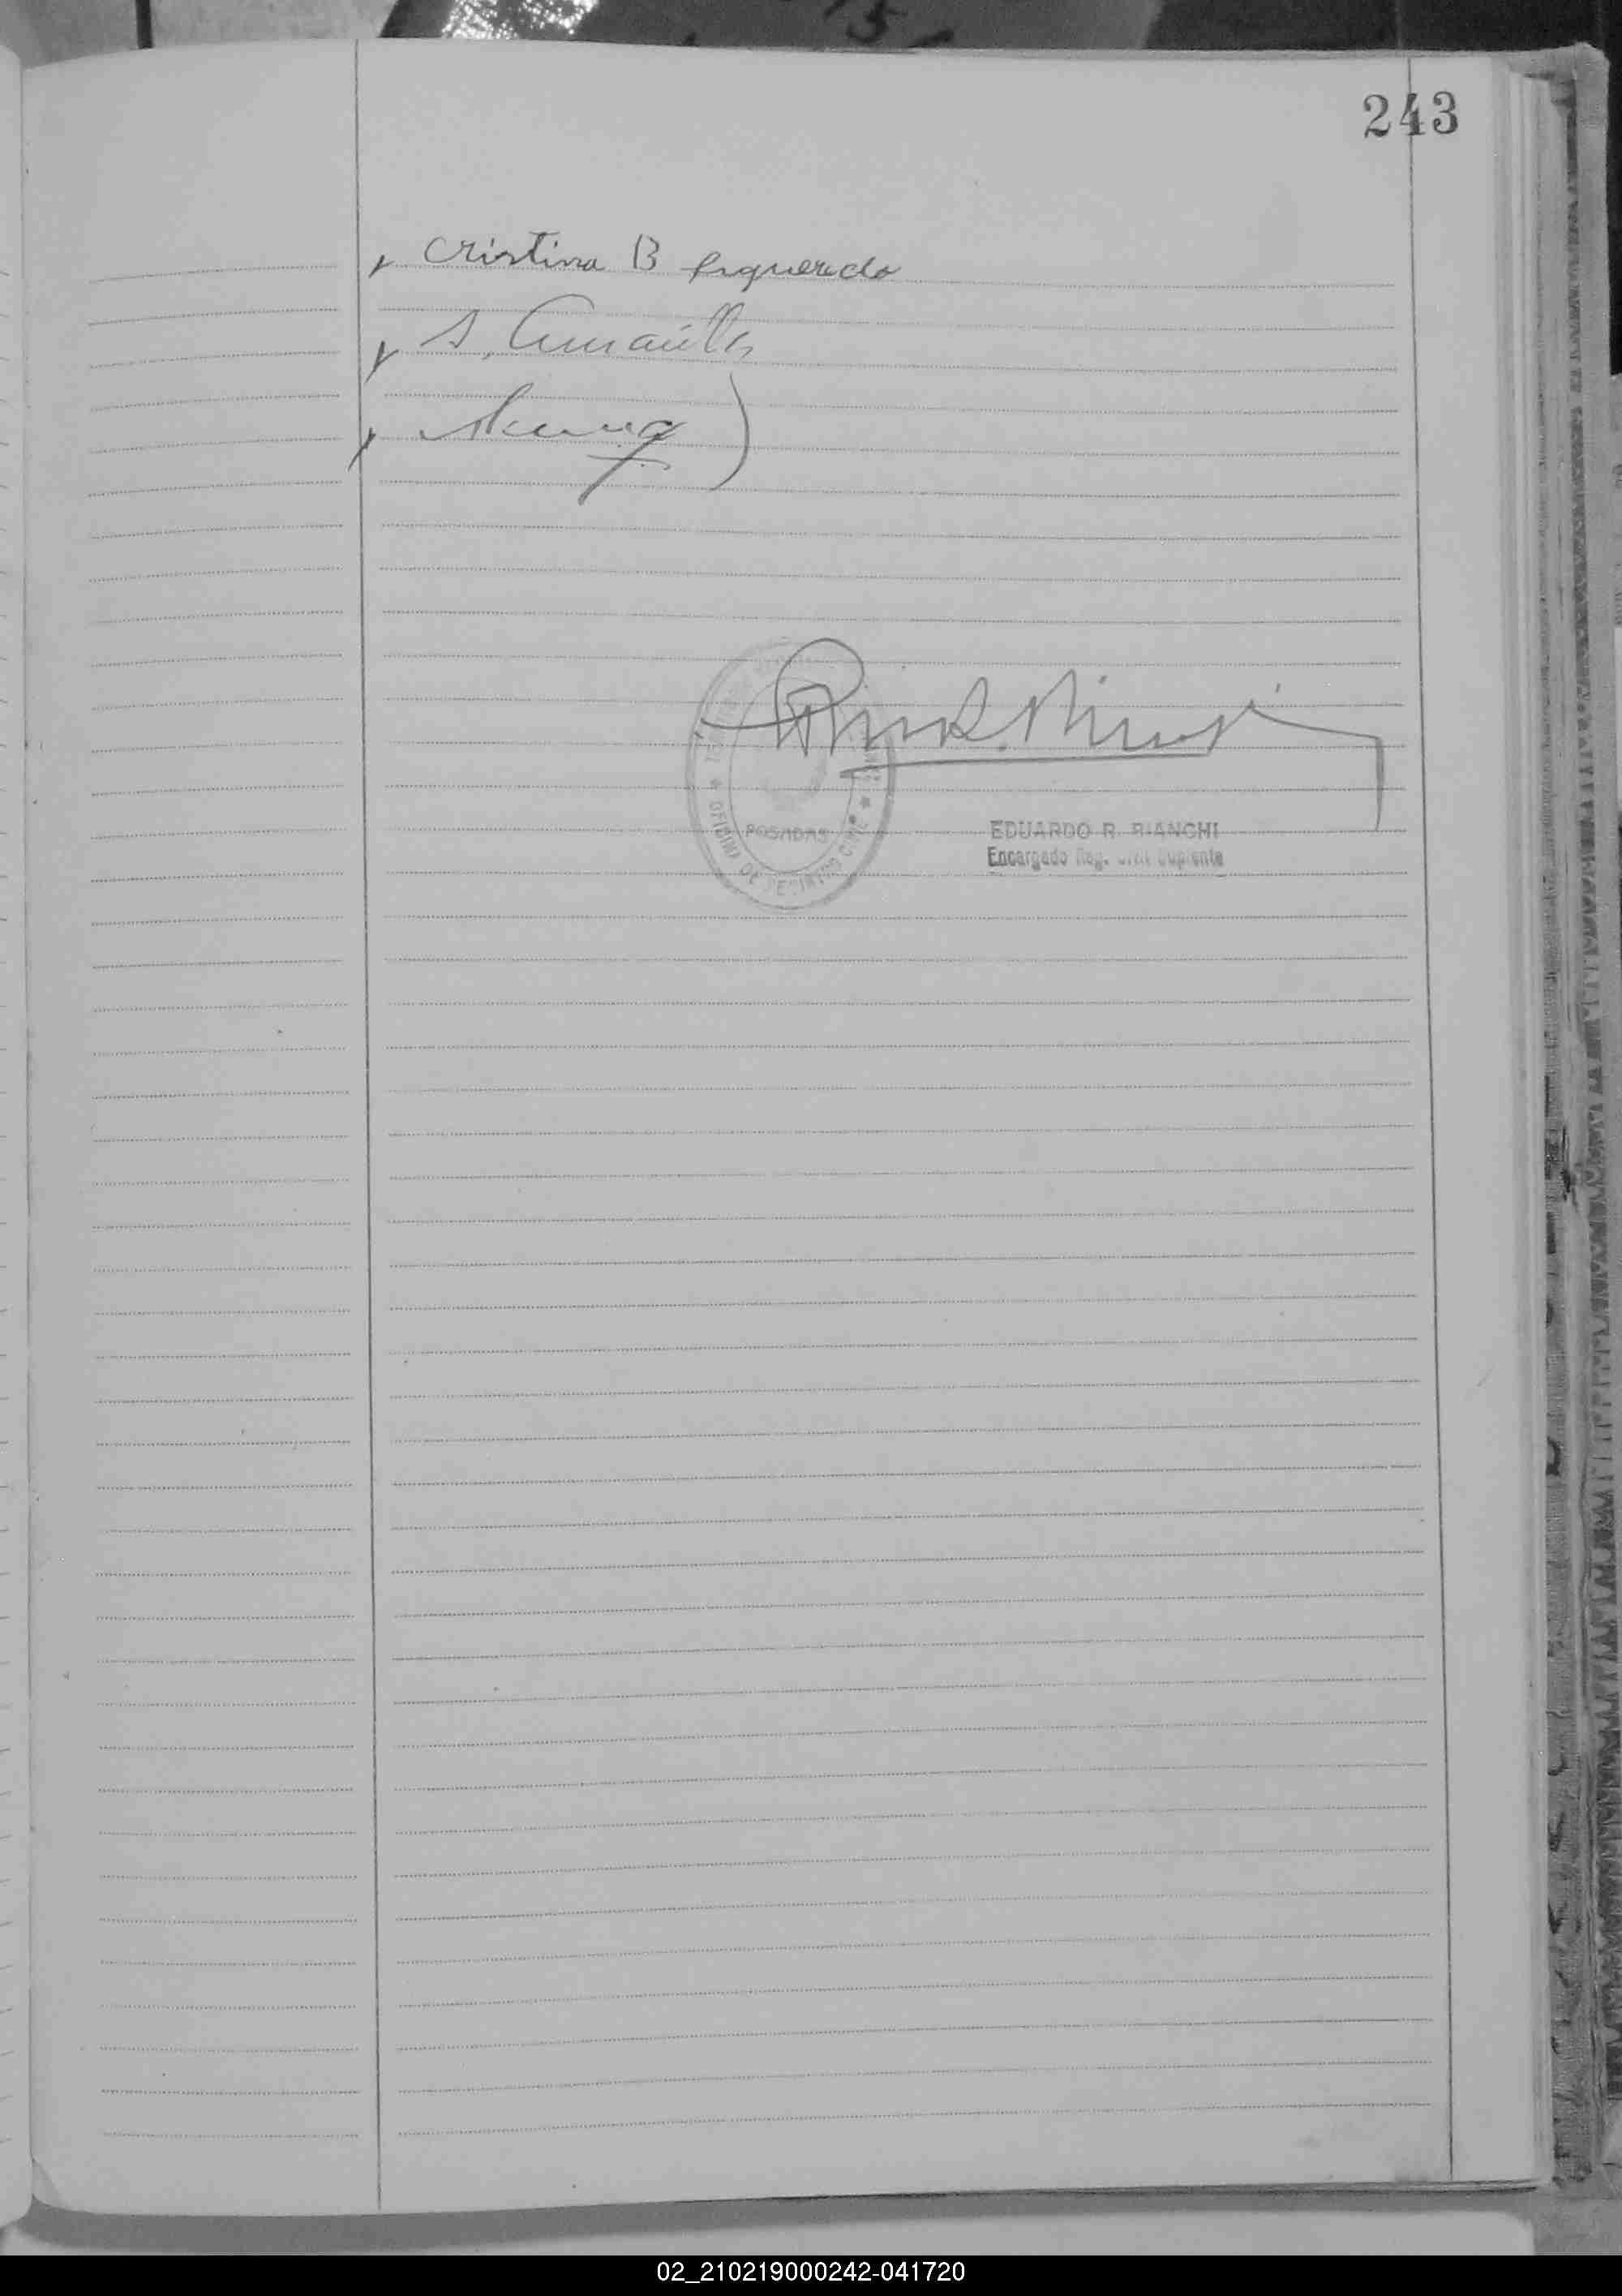 243
Cristina B Figueredo
S. Amarilla
POSADAS
OFICINA DE REGISTRO CIVIL
EDUARDO R. BIANCHI
Encargado Reg. Civil Suplente
02_210219000242-041720